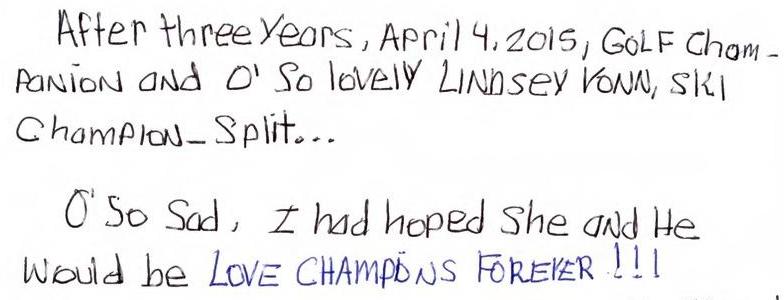 After three Years, April 4, 2015, GOLF Cham-
PANION AND O' So lovely LINDSEY VONN, SKI
Champion_ Split...
O' So Sad, I had hoped She AND He
Would be LOVE CHAMPIONS FOREVER !!!